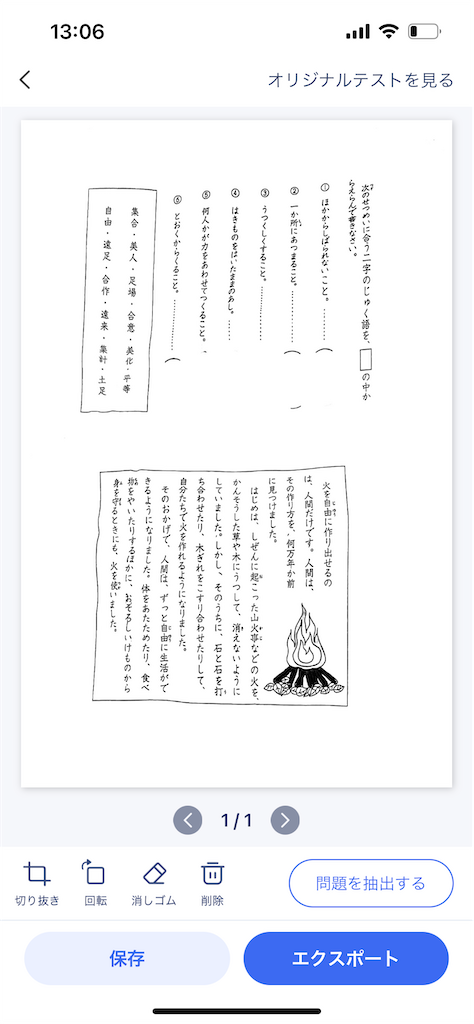 13:06
オリジナルテストを見る
次のせつめいに合う二字のじゅく語を、 の中か
らえらんで書きなさい。
① ほかからしばられないこと。
② 一か所にあつまること。
③ うつくしくすること。
④ はきものをはいたままのあし。
⑤ 何人かが力をあわせてつくること。
⑥ とおくからくること。
集合・美人・足場・合意・美化・平等
自由・遠足・合作・遠来・集計・土足
火を自由に作り出せるの
は、人間だけです。人間は、
その作り方を、何万年か前
に見つけました。
はじめは、しぜんに起こった山火事などの火を、
かんそうした草や木にうつして、消えないように
していました。しかし、そのうちに、石と石を打
ち合わせたり、木ぎれをこすり合わせたりして、
自分たちで火を作れるようになりました。
そのおかげで、人間は、ずっと自由に生活がで
きるようになりました。体をあたためたり、食べ
物をやいたりするほかに、おそろしいけものから
身を守るときにも、火を使いました。
1/1
切り抜き
回転
消しゴム
削除
問題を抽出する
保存
エクスポート